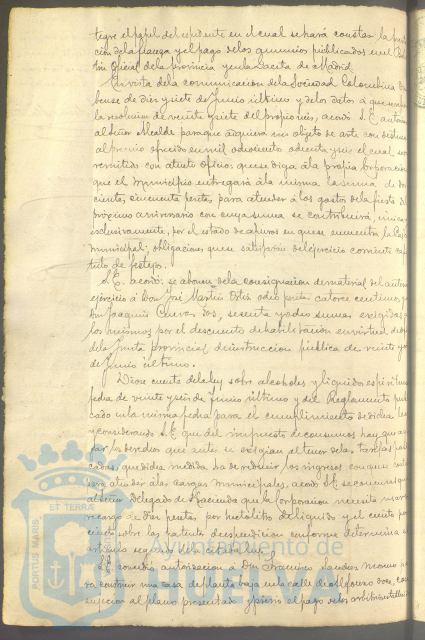 tegre el papel del espediente en el cual se hará constar la
ción de la fianza y el pago de los anuncios publicados en el
tin Oficial de la provincia y en la Gaceta de Madrid.
En vista de la comunicacion de la Sociedad Colombina
bense de diez y siete de Junio último y de los datos á que
la resolucion de veinte y siete del propio mes, acordó S. E.
al Señor Alcalde para que adquiera un objeto de arte con destino
al premio ofrecido en mil ochocientos ochenta y seis el cual
remitido con atento oficio: que se diga á la propia Corporacion
que el Municipio entregará á la misma la suma de
cientas cincuenta pesetas, para atender á los gastos de la fiesta del
próximo aniversario con cuya suma se contribuirá,
esclusivamente, por el estado de apuros en que se encuentra la
municipal; obligaciones que se satisfarán del ejercicio corriente
tulo de festejos.
S. E. acordó: se abonen de la consignacion de material del anterior
ejercicio á Don José Martin ocho pesetas catorce centimos, y
Don Joaquin dos, sesenta y dos sumas exigidas
los mismos por el descuento de habilitacion en virtud
de la Junta provincial de instruccion publica de veinte y
de Junio último.
Diose cuenta de la ley sobre alcoholes y liquidos espirituosos
fecha de veinte y seis de Junio último y del Reglamento
cado en la misma fecha para el cumplimiento de dicha ley
y considerando S. E. que del impuesto de consumos hay que
jar los derechos que antes se exigian al tenor de las tarifas
cadas, que dicha medida ha de reducir los ingresos con que
para atender á las cargas municipales, acordó S. E. se comunique
al Señor Delegado de Hacienda que la Corporacion necesita usar
recargo de diez pesetas por hectólitro de liquido y el ciento por
ciento sobre las patentes de espendicion conforme determina el
artículo segundo
S. E. concedió autorizacion á Don Francisco
ra construir una casa de planta baja en la calle de doce, con
sujecion al plano presentado y previo el pago de los arbitrios
PORTUS MARIS
ET TERRÆ
Ayuntamiento de
HUELVA